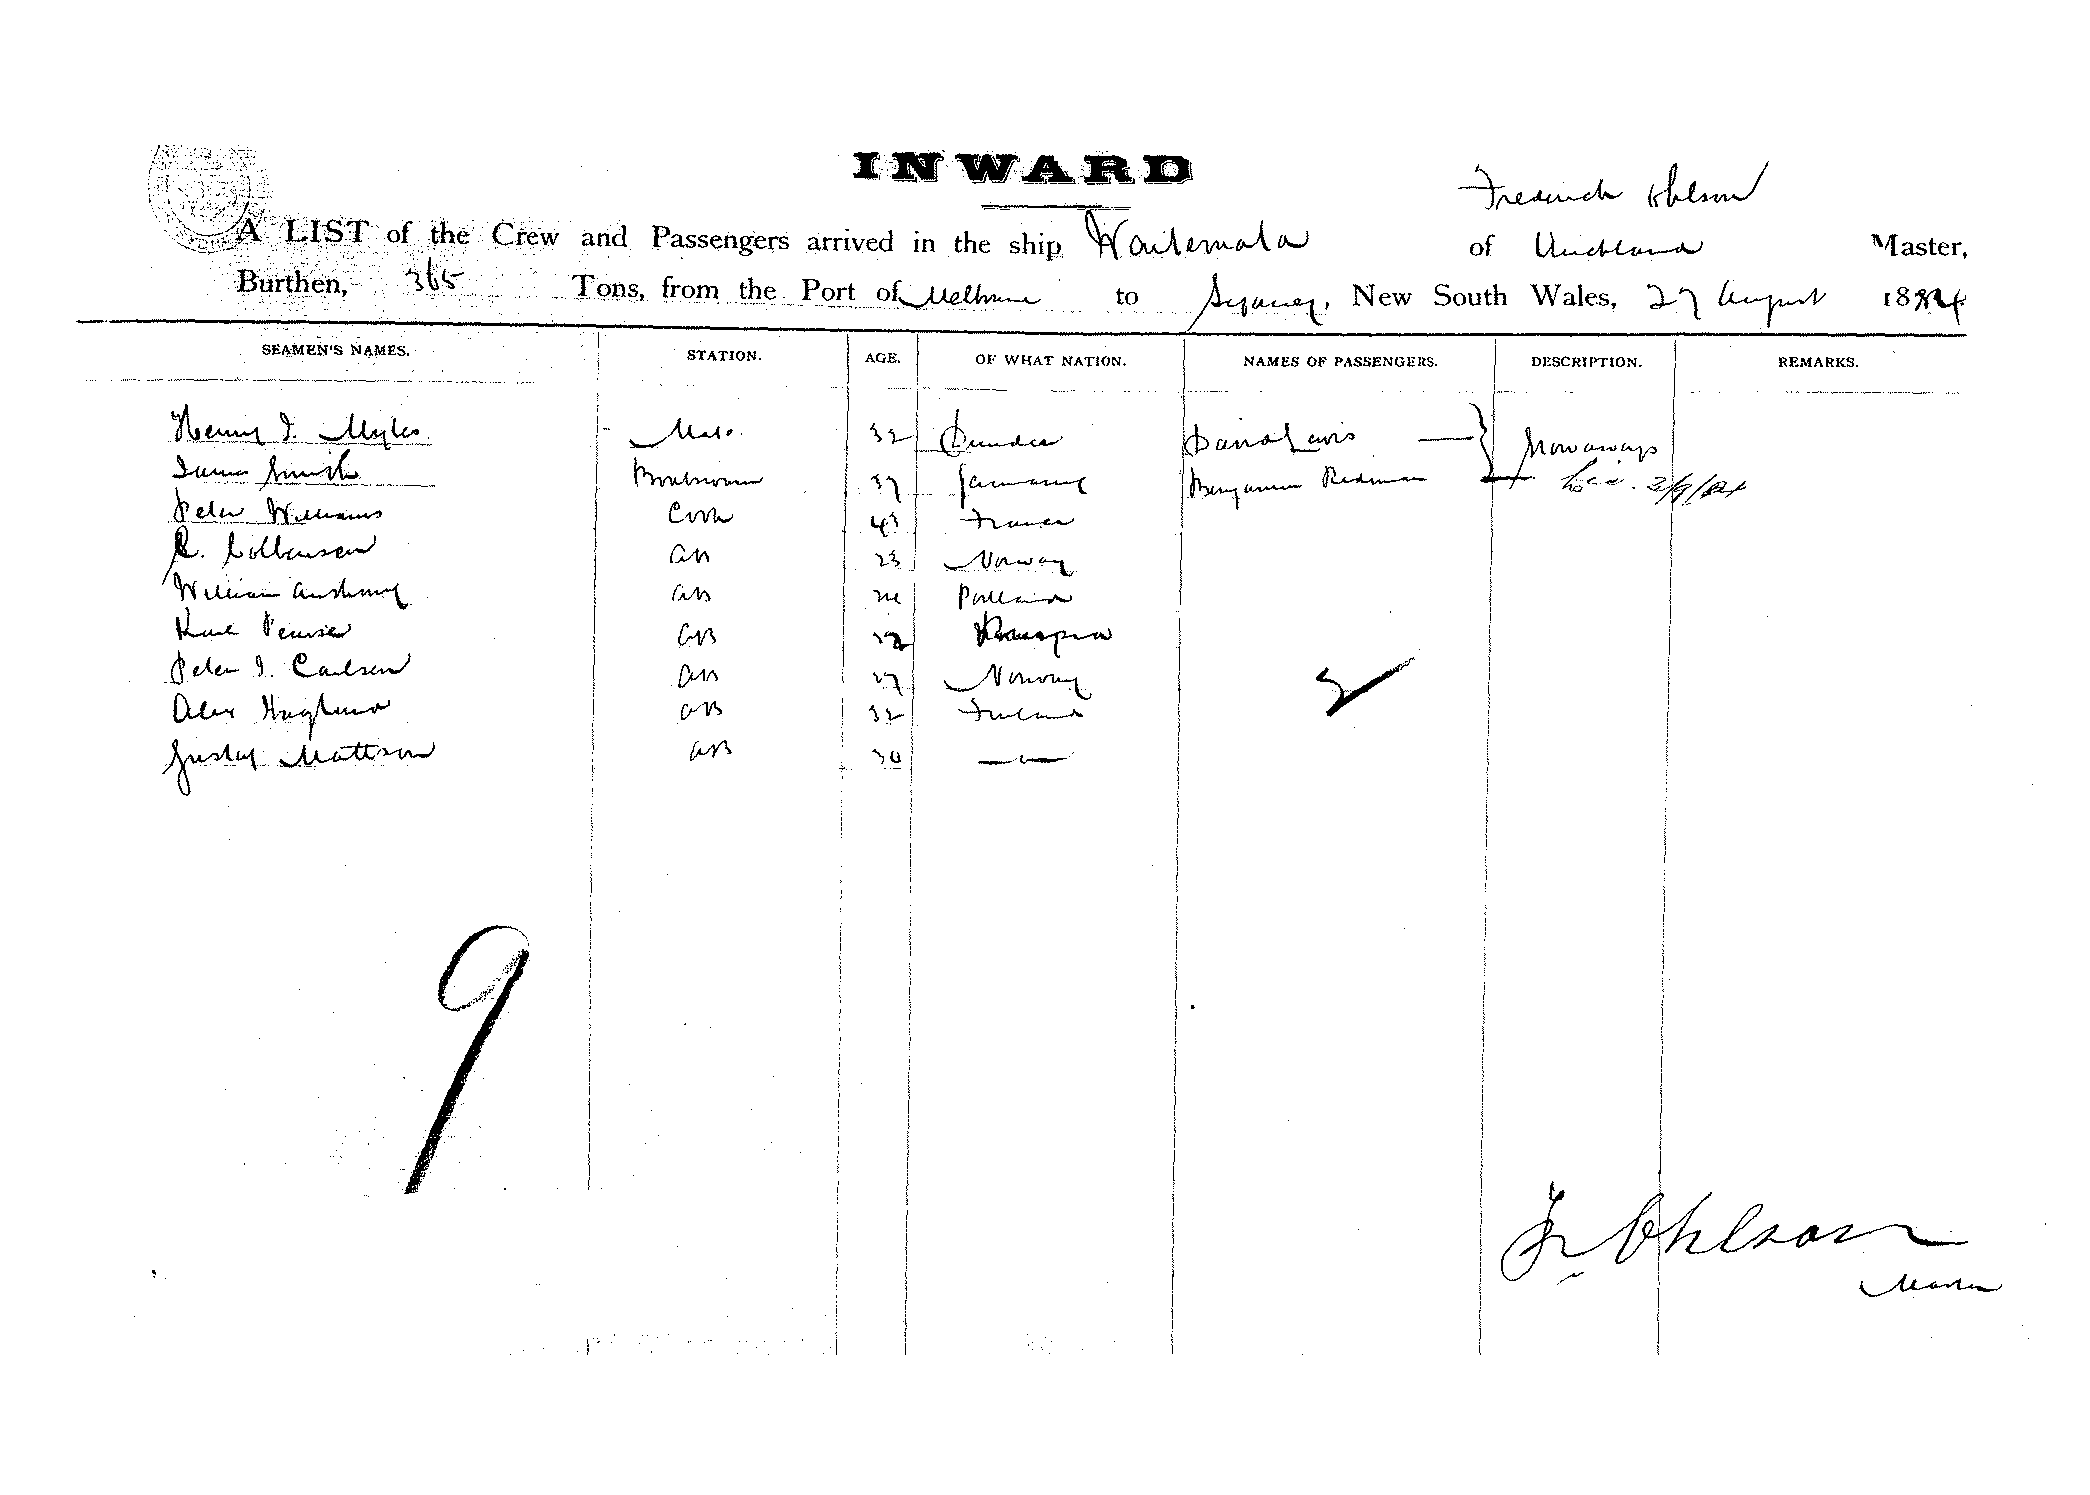 INWARD
Frederick Ohlson
A LIST of the Crew and Passengers arrived in the ship Waitemata of Auckland Master,
Burthen, 365 Tons, from the Port of Melbourne to Sydney, New South Wales, 27 August 1884
SEAMEN'S NAMES. STATION. AGE. OF WHAT NATION. NAMES OF PASSENGERS. DESCRIPTION. REMARKS.
Henry I. Myles Mate 32 Dundee David Lewis Stowaways
James Smith Boatswain 37 Germany Benjamin Redman 2/9/84
Peter Williams Cook 43 France
Colbensen AB 23 Norway
William Anthony AB Portland
Karl Pearse AB
Peter I. Carlsen AB 27 Norway
Alex Haglund AB 32 Finland
Gustaf Mattson AB 30 — " —
2
9
Fr Ohlson
Master